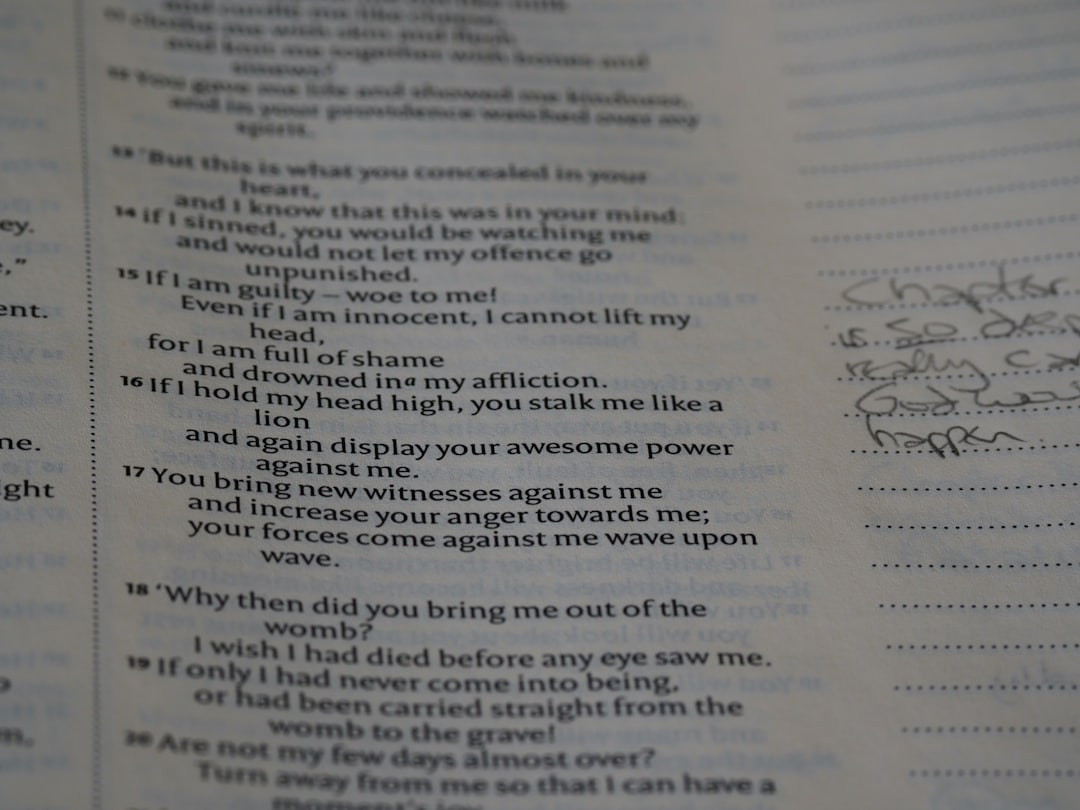 sinews?
12 You gave me life and showed me kindness,
and in your providence watched over my
spirit.
13 ‘But this is what you concealed in your
heart,
and I know that this was in your mind:
14 if I sinned, you would be watching me
and would not let my offence go
unpunished.
15 If I am guilty – woe to me!
Even if I am innocent, I cannot lift my
head,
for I am full of shame
and drowned in a my affliction.
16 If I hold my head high, you stalk me like a
lion
and again display your awesome power
against me.
17 You bring new witnesses against me
and increase your anger towards me;
your forces come against me wave upon
wave.
18 ‘Why then did you bring me out of the
womb?
I wish I had died before any eye saw me.
19 If only I had never come into being,
or had been carried straight from the
womb to the grave!
20 Are not my few days almost over?
Turn away from me so that I can have a
moment's joy
ey.
,”
ent.
ne.
ight
Chapter
is so
really
God
happen.